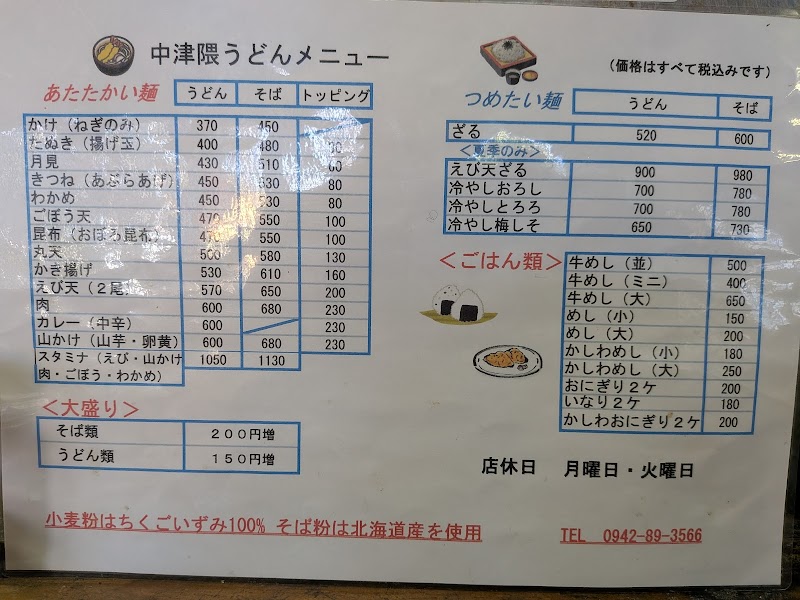 中津隈うどんメニュー
(価格はすべて税込みです)
あたたかい麺 うどん そば トッピング
かけ（ねぎのみ） 370 450
たぬき（揚げ玉） 400 480
月見 430 510 60
きつね（あぶらあげ） 450 530 80
わかめ 450 530 80
ごぼう天 470 550 100
昆布（おぼろ昆布） 470 550 100
丸天 500 580 130
かき揚げ 530 610 160
えび天（２尾） 570 650 200
肉 600 680 230
カレー（中辛） 600 230
山かけ（山芋・卵黄） 600 680 230
スタミナ（えび・山かけ 1050 1130
肉・ごぼう・わかめ）
＜大盛り＞
そば類 ２００円増
うどん類 １５０円増
つめたい麺 うどん そば
ざる 520 600
＜夏季のみ＞
えび天ざる 900 980
冷やしおろし 700 780
冷やしとろろ 700 780
冷やし梅しそ 650 730
＜ごはん類＞
牛めし（並） 500
牛めし（ミニ） 400
牛めし（大） 650
めし（小） 150
めし（大） 200
かしわめし（小） 180
かしわめし（大） 250
おにぎり２ケ 200
いなり２ケ 180
かしわおにぎり２ケ 200
店休日 月曜日・火曜日
小麦粉はちくごいずみ100% そば粉は北海道産を使用
TEL 0942-89-3566